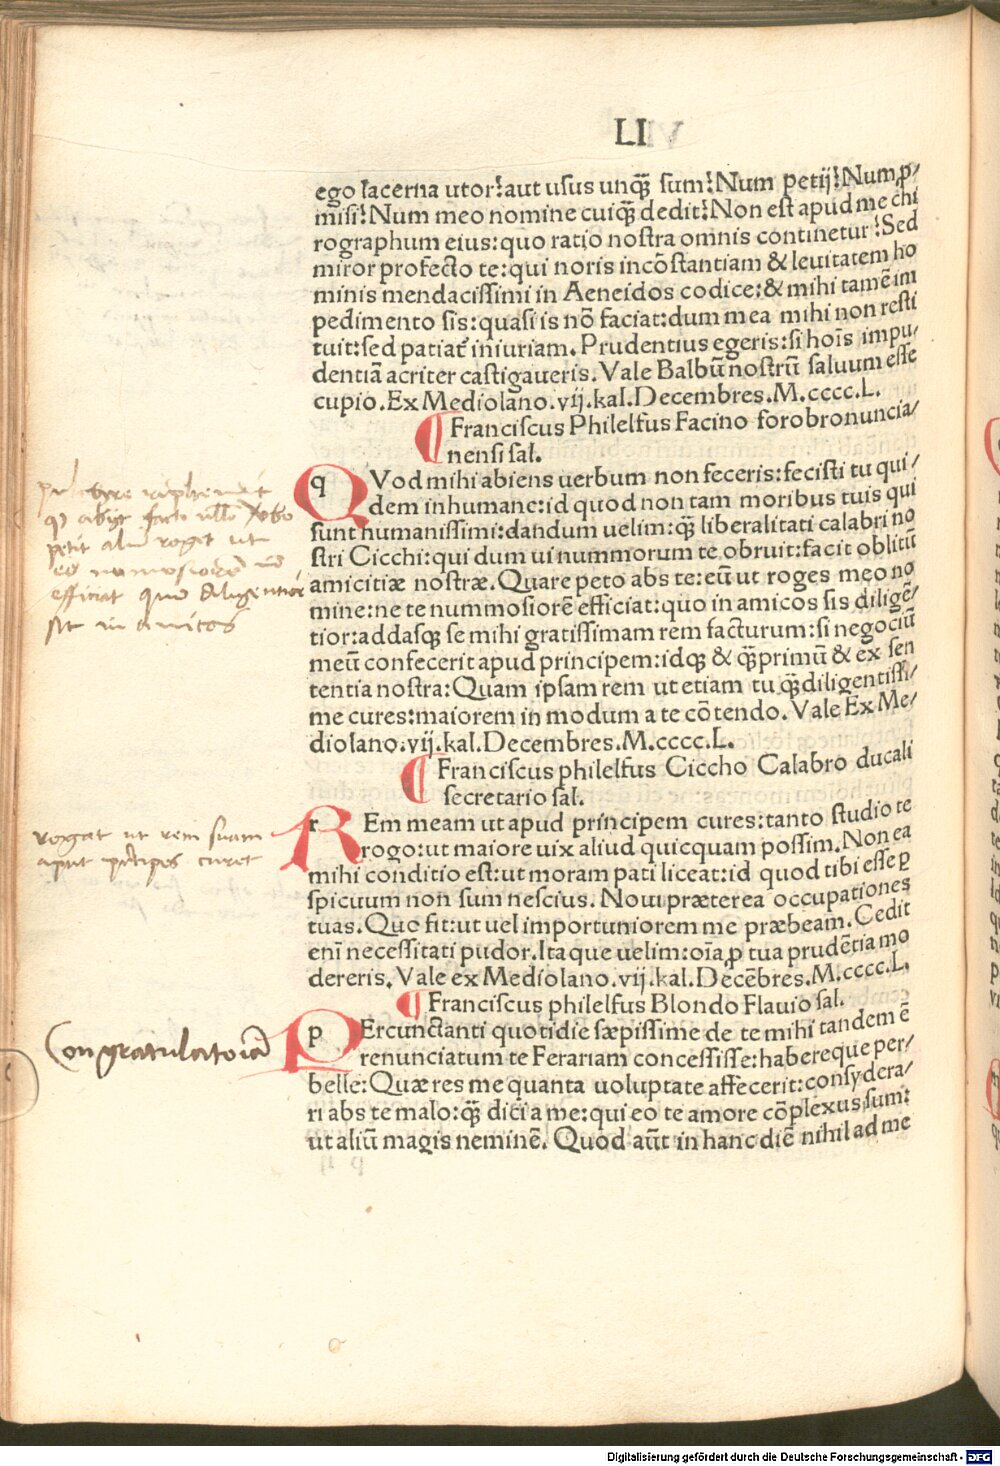 LI
ego lacerna utor? aut usus unq̃ sum? Num petij? Num ꝓ/
misi? Num meo nomine cuiq̃ dedit? Non est apud me chi
rographum eius: quo ratio nostra omnis continetur? Sed
miror profecto te: qui noris incõstantiam & leuitatem ho
minis mendacissimi in Aeneidos codice: & mihi tamẽ im
pedimento sis: quasi is nõ faciat: dum mea mihi non resti
tuit: sed patiat̃ iniuriam. Prudentius egeris: si hoĩs impu/
dentiã acriter castigaueris. Vale Balbũ nostrũ saluum esse
cupio. Ex Mediolano. vij. kal. Decembres. M. cccc. L.
¶ Franciscus Philelfus Facino forobronuncia/
nensi sal.
QVod mihi abiens uerbum non feceris: fecisti tu qui/
dem inhumane: id quod non tam moribus tuis qui
sunt humanissimi: dandum uelim: q̃ liberalitati calabri no
stri Cicchi: qui dum ui nummorum te obruit: facit oblitũ
amicitiæ nostræ. Quare peto abs te: eũ ut roges meo no
mine: ne te nummosiorẽ efficiat: quo in amicos sis diligẽ/
tior: addasq̃ se mihi gratissimam rem facturum: si negociũ
meũ confecerit apud principem: idq̃ & q̃primũ & ex sen
tentia nostra: Quam ipsam rem ut etiam tu q̃diligentissi/
me cures: maiorem in modum a te cõtendo. Vale Ex Me/
diolano. vij. kal. Decembres. M. cccc. L.
¶ Franciscus philelfus Ciccho Calabro ducali
secretario sal.
REm meam ut apud principem cures: tanto studio te
rogo: ut maiore uix aliud quicquam possim. Non ea
mihi conditio est: ut moram pati liceat: id quod tibi esse ꝑ
spicuum non sum nescius. Noui præterea occupationes
tuas. Quo fit: ut uel importuniorem me præbeam. Cedit
enĩ necessitati pudor. Itaque uelim: oĩa ꝓ tua prudẽtia mo
dereris. Vale ex Mediolano. vij. kal. Decẽbres. M. cccc. L.
¶ Franciscus philelfus Blondo Flauio sal.
PErcunctanti quotidie sæpissime de te mihi tandem ẽ
renunciatum te Ferariam concessisse: habereque per/
belle: Quæ res me quanta uoluptate affecerit: consydera/
ri abs te malo: q̃ dici a me: qui eo te amore cõplexus sum:
ut aliũ magis neminẽ. Quod aũt in hanc diẽ nihil ad me
efficiat quo diligentior
sit in amicos
rogat ut rem suam
apud principes curet
Congratulatoria
Digitalisierung gefördert durch die Deutsche Forschungsgemeinschaft - DFG